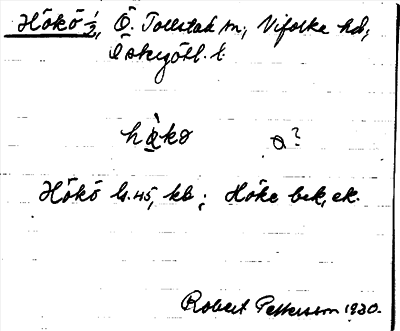 Hökö ½, Ö. Tollstad sn, Vifolka hd,
Östergötl. l.
håkə ə?
Hökö h. 45, kb; Höke bek, ek.
Robert Pettersson 1920.